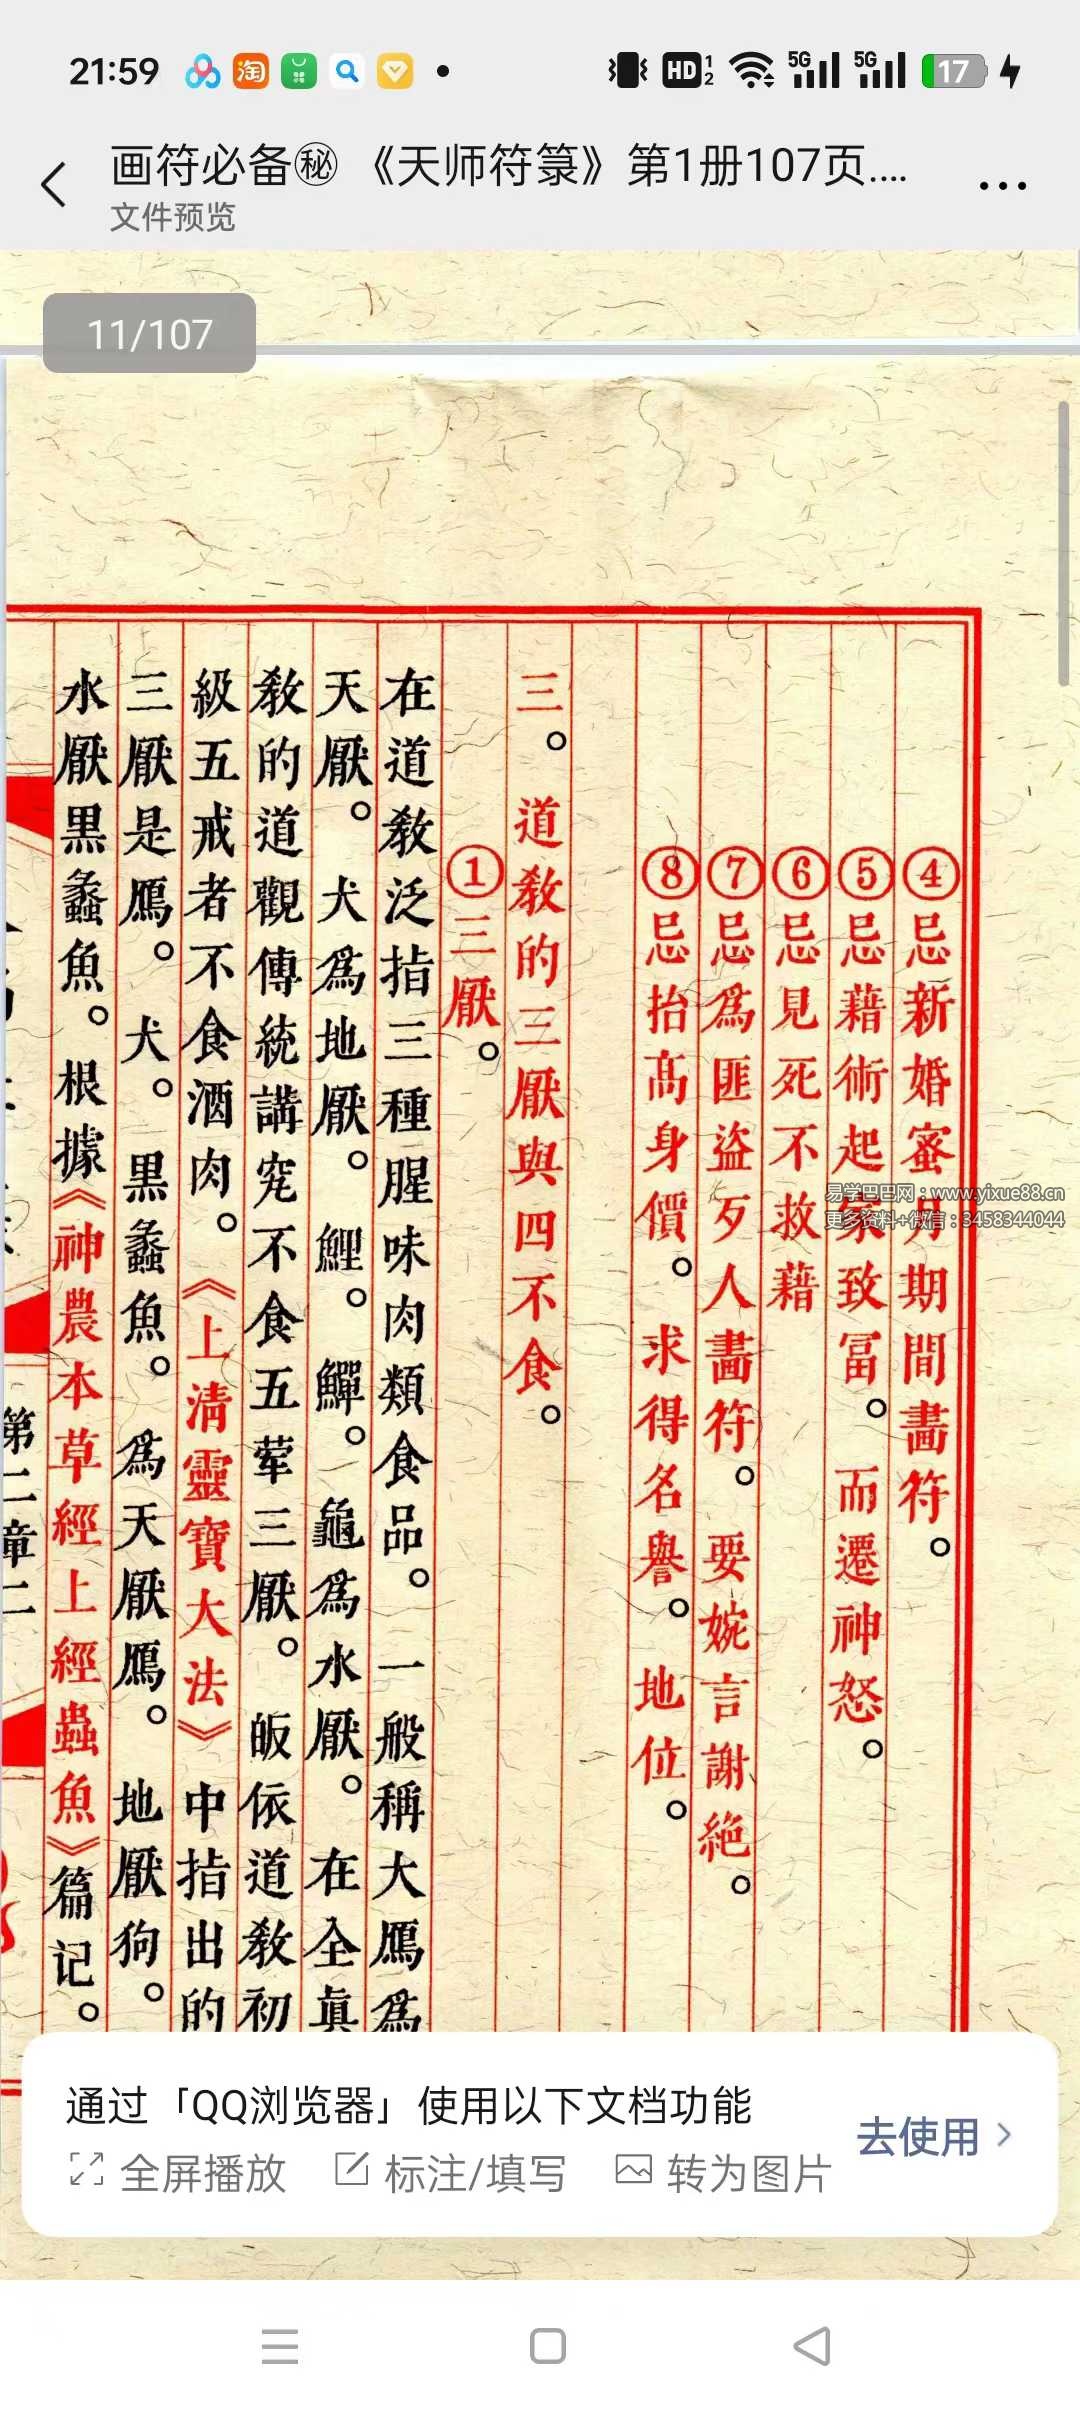 21:59
淘
HD 1 2
5G
5G
17
画符必备㊙《天师符箓》第1册107页....
文件预览
11/107
④忌新婚蜜月期間畵符。
⑤忌藉術起家致冨。而遷神怒。
⑥忌見死不救藉
⑦忌爲匪盜歹人畵符。要婉言謝絶。
⑧忌抬髙身價。求得名譽。地位。
三。道敎的三厭與四不食。
①三厭。
在道敎泛指三種腥味肉類食品。一般稱大鴈爲
天厭。犬爲地厭。鯉。鱓。龜爲水厭。在全眞
敎的道觀傳統講究不食五荤三厭。皈依道敎初
級五戒者不食酒肉。《上清靈寶大法》中指出的
三厭是鴈。犬。黒蠡魚。爲天厭鴈。地厭狗。
水厭黒蠡魚。根據《神農本草經上經蟲魚》篇记。
第二章二
易学巴巴网：www.yixue88.cn
更多资料+微信：3458344044
通过「QQ浏览器」使用以下文档功能
全屏播放 标注/填写 转为图片
去使用